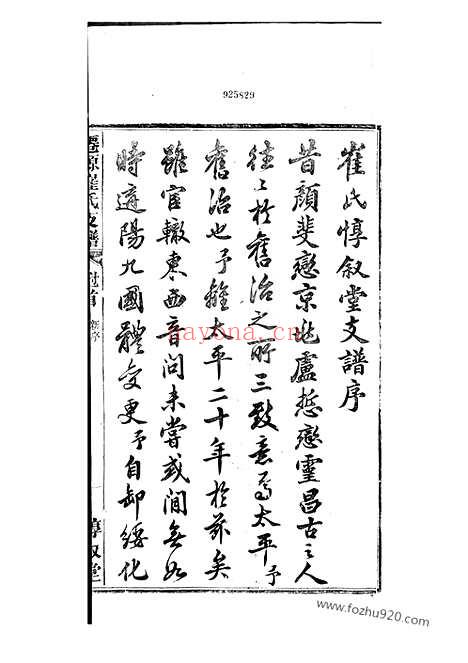 925829
崔氏惇叙堂支譜序
昔顏斐戀京兆盧悊戀靈昌古之人
往々於舊治之所三致意焉太平予
舊治也予離太平二十年於茲矣
雖官轍東西音問未嘗或間無如
時遘陽九國體變更予自卸綏化
崔氏支譜
首
惇叙堂
nayona.cn
www.fozhu920.com